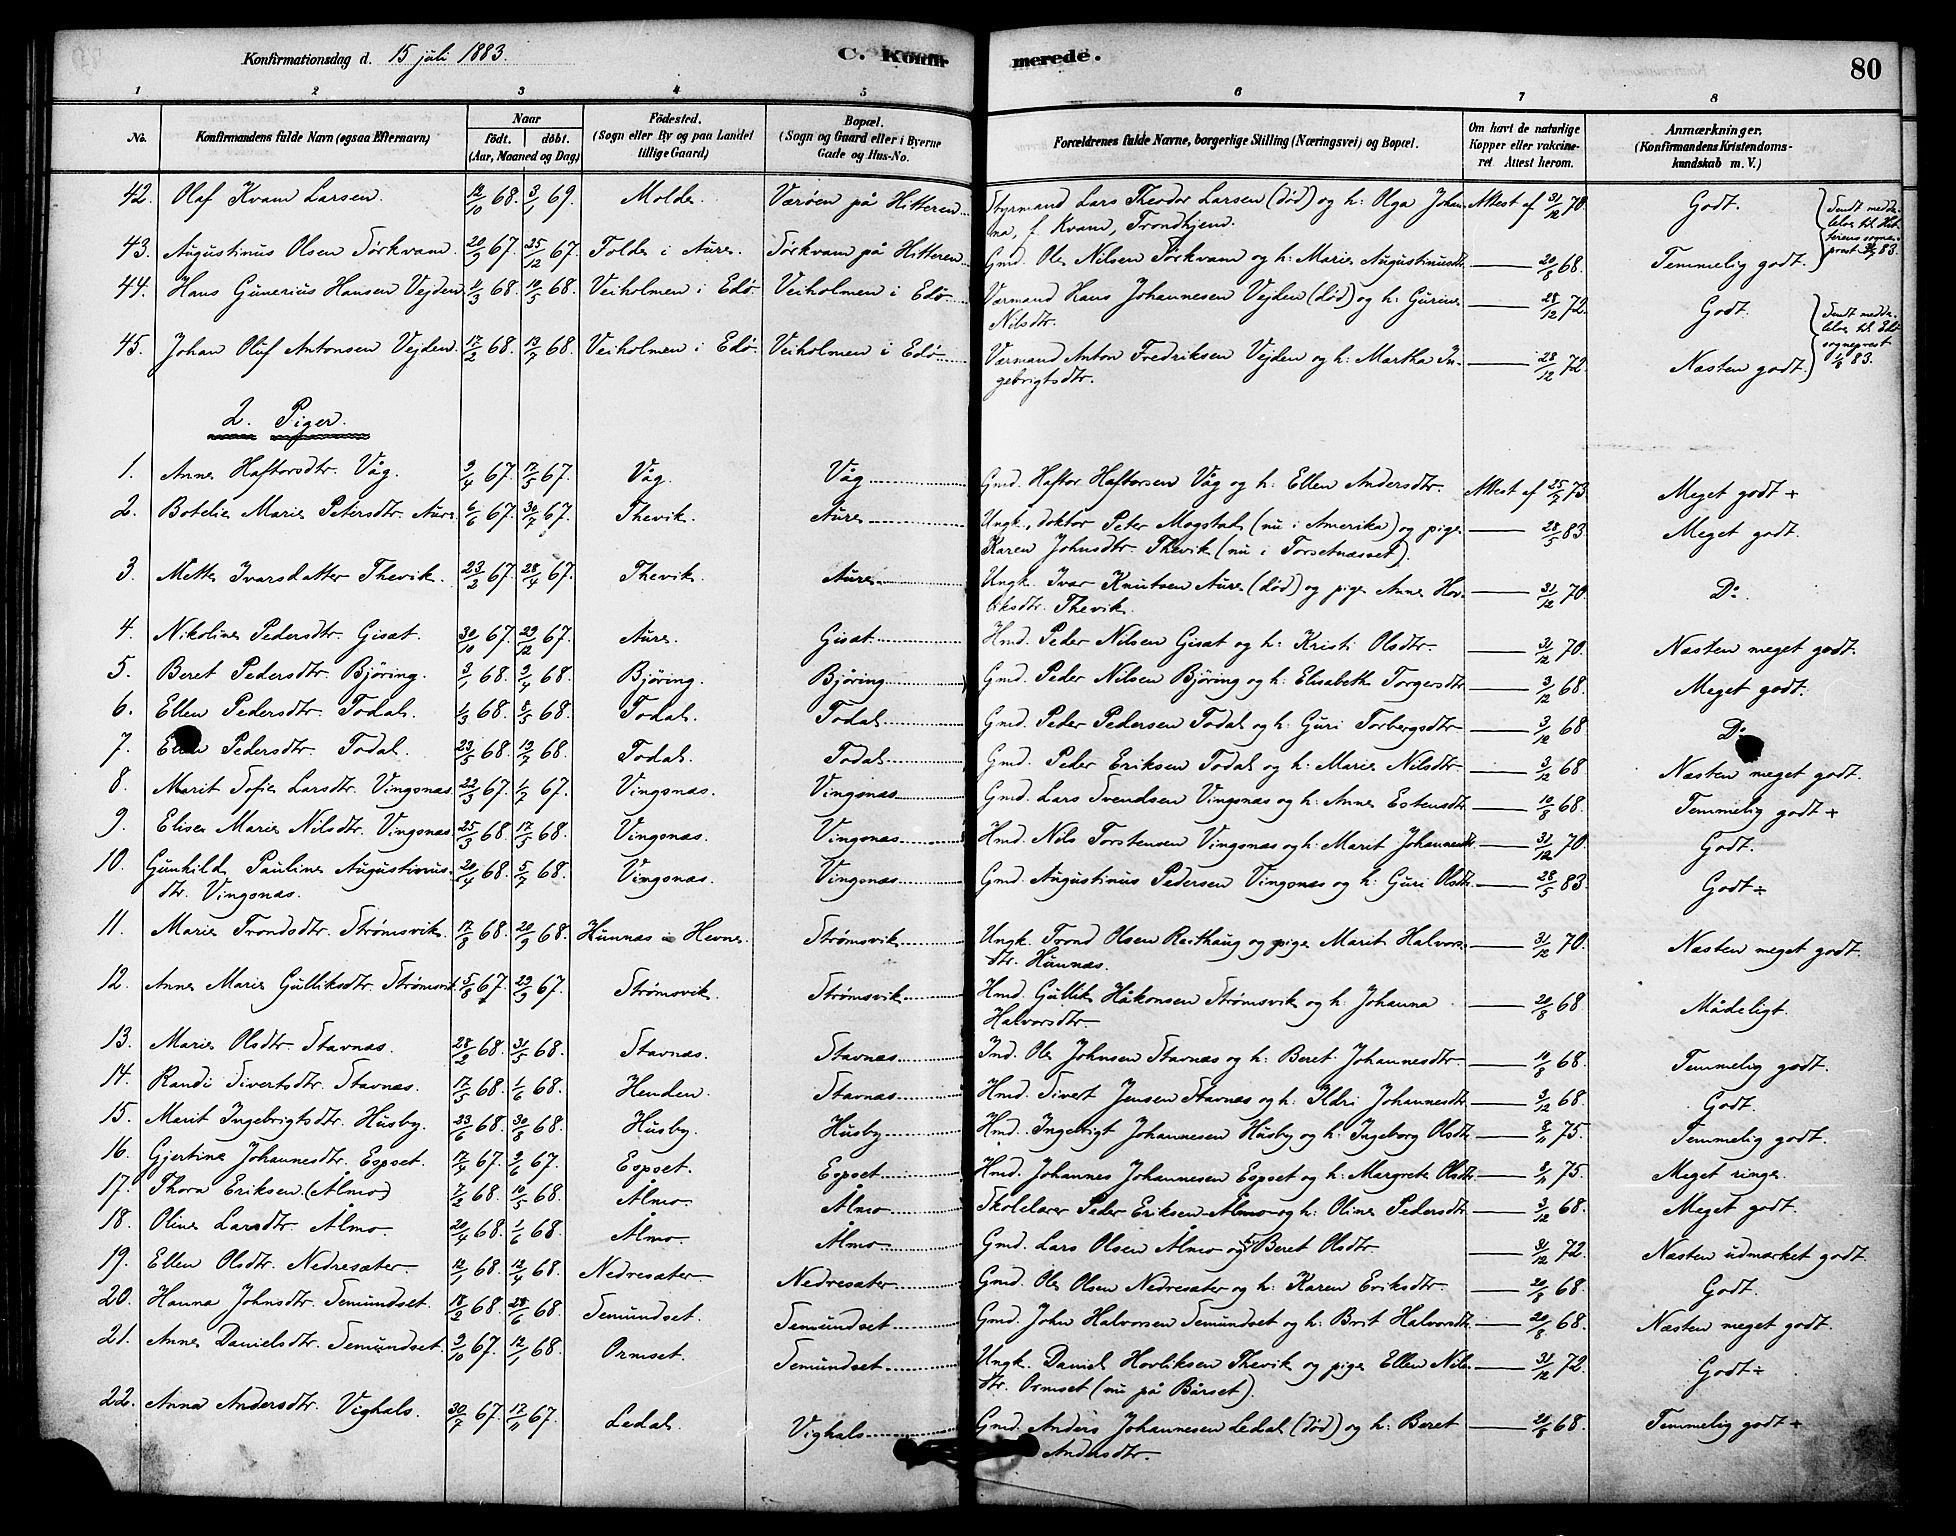 Konfirmationsdag d. 15 juli 1883.
C. Konfirmerede.
80
1 2 3 4 5 6 7 8
No. Konfirmandens fulde Navn (ogsaa Efternavn) Naar født. døbt. (Aar, Maaned og Dag) Fødested. (Sogn eller By og paa Landet tillige Gaard) Bopæl. (Sogn og Gaard eller i Byerne Gade og Hus-No. Forældrenes fulde Navne, borgerlige Stilling (Næringsvei) og Bopæl. Om havt de naturlige Kopper eller vakcineret. Attest herom. Anmærkninger. (Konfirmandens Kristendomskundskab m. V.)
42. Olaf Kvam Larsen. 12/10 68. 3/1 69. Molde. Værøen på Hitteren Styrmand Lars Theodor Larsen (død) og h: Olga Johanna, f. Kvam, Trondhjem. Attest af 31/12 70. Godt.
43. Augustinus Olsen Törkvam. 20/9 67. 25/12 67. Tolde i Aure. Törkvam på Hitteren Gmd. Ole Nilsen Törkvam og h: Marie Augustinusdtr. — 20/8 68. Temmelig godt.
Sendt meddelelse til Hitterens sogneprest 83.
44. Hans Gunerius Hansen Vejden 68. 10/5 68. Veiholmen i Edö Veiholmen i Edö Vermand Hans Johannesen Vejden (død) og h: Gurine Nilsdtr. — 28/12 72. Godt.
45. Johan Oluf Antonsen Vejden. 17/2 68. 13/7 68. Veiholmen i Edö. Veiholmen i Edö Vermand Anton Fredriksen Vejden og h: Martha Ingebrigtsdtr. — 28/12 72. Næsten godt.
Sendt meddelelse til Edö sogneprest 1/8 83.
2. Piger.
1. Anne Haftorsdtr. Våg. 9/4 67. 17/5 67. Våg. Våg Gmd. Haftor Haftorsen Våg og h: Ellen Andersdtr. Attest af 73. Meget godt +
2. Botelie Marie Petersdtr. Aure 6/6 67. 30/7 67. Thevik. Aure Ungk., doktor Peter Mogstad (nu i Amerika) og pige Karen Johnsdtr. Thevik (nu i Torsetnæsset). — 28/5 83. Meget godt.
3. Mette Ivarsdatter Thevik. 23/2 67. 28/4 67. Thevik. Aure Ungk. Ivar Knutsen Aure (død) og pige Anne Hovliksdtr. Thevik. — 31/12 70. Do.
4. Nikoline Pedersdtr. Gisat. 30/10 67. 29/12 67. Aure. Gisat Hmd. Peder Nilsen Gisat og h: Kristi Olsdtr. — 31/12 70. Næsten meget godt.
5. Beret Pedersdtr. Björing. 3/1 68. 3/4 68. Björing. Björing Gmd. Peder Nilsen Björing og h: Elisabeth Torgersdtr — 3/12 68. Meget godt.
6. Ellen Pedersdtr. Todal. 1/3 68. 68. Todal. Todal Gmd. Peder Pedersen Todal og h: Guri Torbergsdtr — 3/12 68. Do.
7. Ellen Pedersdtr. Todal. 23/5 68. 13/7 68. Todal. Todal Gmd. Peder Eriksen Todal og h: Marie Nilsdtr — 3/12 68. Næsten meget godt.
8. Marit Sofie Larsdtr. Vingsnæs 22/3 67. 1/7 67. Vingsnæs. Vingsnæs Gmd. Lars Svendsen Vingsnæs og h: Anne Estensdtr. — 10/8 68. Temmelig godt +
9. Elise Marie Nilsdtr. Vingsnæs. 25/3 68. 17/5 68. Vingsnæs. Vingsnæs Hmd. Nils Torstensen Vingsnæs og h: Marit Johannesdtr. — 31/12 70. Godt.
10. Gunhild Pauline Augustinusdtr. Vingsnæs. 20/4 68. 5/7 68. Vingsnæs. Vingsnæs Gmd. Augustinus Pedersen Vingsnæs og h: Guri Olsdtr. — 28/5 83. Godt ÷
11. Marie Trondsdtr. Strømsvik. 17/8 68. 20/9 68. Hunnæs i Hevne. Strømsvik Ungk. Trond Olsen Reithaug og pige Marit Halvorsdtr. Hunnæs. — 31/12 70. Næsten meget godt.
12. Anne Marie Gulliksdtr. Strømsvik 5/8 67. 29/9 67. Strømsvik. Strømsvik Hmd. Gullik Håkonsen Strømsvik og h: Johanna Halvorsdtr. — 20/8 68. Mådeligt.
13. Marie Olsdtr. Stavnæs. 28/2 68. 31/5 68. Stavnæs. Stavnæs Ind. Ole Johnsen Stavnæs og h: Beret Johannesdtr. — 10/8 68. Temmelig godt.
14. Randi Sivertsdtr. Stavnæs. 17/5 68. 1/6 68. Henden. Stavnæs Hmd. Sivert Jensen Stavnæs og h: Ildri Johannesdtr — 3/12 68. Godt.
15. Marit Ingebrigtsdtr. Husby. 23/6 68. 30/8 68. Husby. Husby Hmd. Ingebrigt Johannesen Husby og h: Ingeborg Olsdtr. — 75. Temmelig godt.
16. Gjertine Johannesdtr. Espset. 17/4 67. 9/6 67. Espset. Espset Hmd. Johannes Johannesen Espset og h: Margrete Olsdtr. — 75. Meget ringe.
17. Thora Eriksen (Ålmo) 7/2 68. 10/5 68. Ålmo. Ålmo Skolelærer Peder Eriksen Ålmo og h: Oline Pedersdtr — 3/12 68. Meget godt.
18. Oline Larsdtr. Ålmo. 20/4 68. 1/6 68. Ålmo. Ålmo Gmd. Lars Olsen Ålmo og h: Beret Olsdtr — 31/12 72. Næsten udmærket godt.
19. Ellen Olsdtr. Nedresæter 12/1 68. 12/4 68. Nedresæter Nedresæter Gmd. Ole Olsen Nedresæter og h: Karen Eriksdtr. — 20/8 68. Godt.
20. Hanna Johnsdtr. Semundset. 18/2 68. 28/6 68. Semundset. Semundset Gmd. John Halvorsen Semundset og h: Brit Halvorsdtr. — 20/8 68. Næsten meget godt.
21. Anne Danielsdtr. Semundset. 9/10 67. 12/1 68. Ormset. Semundset Ungk. Daniel Hovliksen Thevik og pige Ellen Nilsdtr. Ormset (nu på Bårset). — 31/12 72. Godt ÷
22. Anna Andersdtr. Vighals. 30/7 67. 17/11 67. Ledal. Vighals Gmd. Anders Johannesen Ledal (død) og h: Beret Andersdtr. — 20/8 68. Temmelig godt +